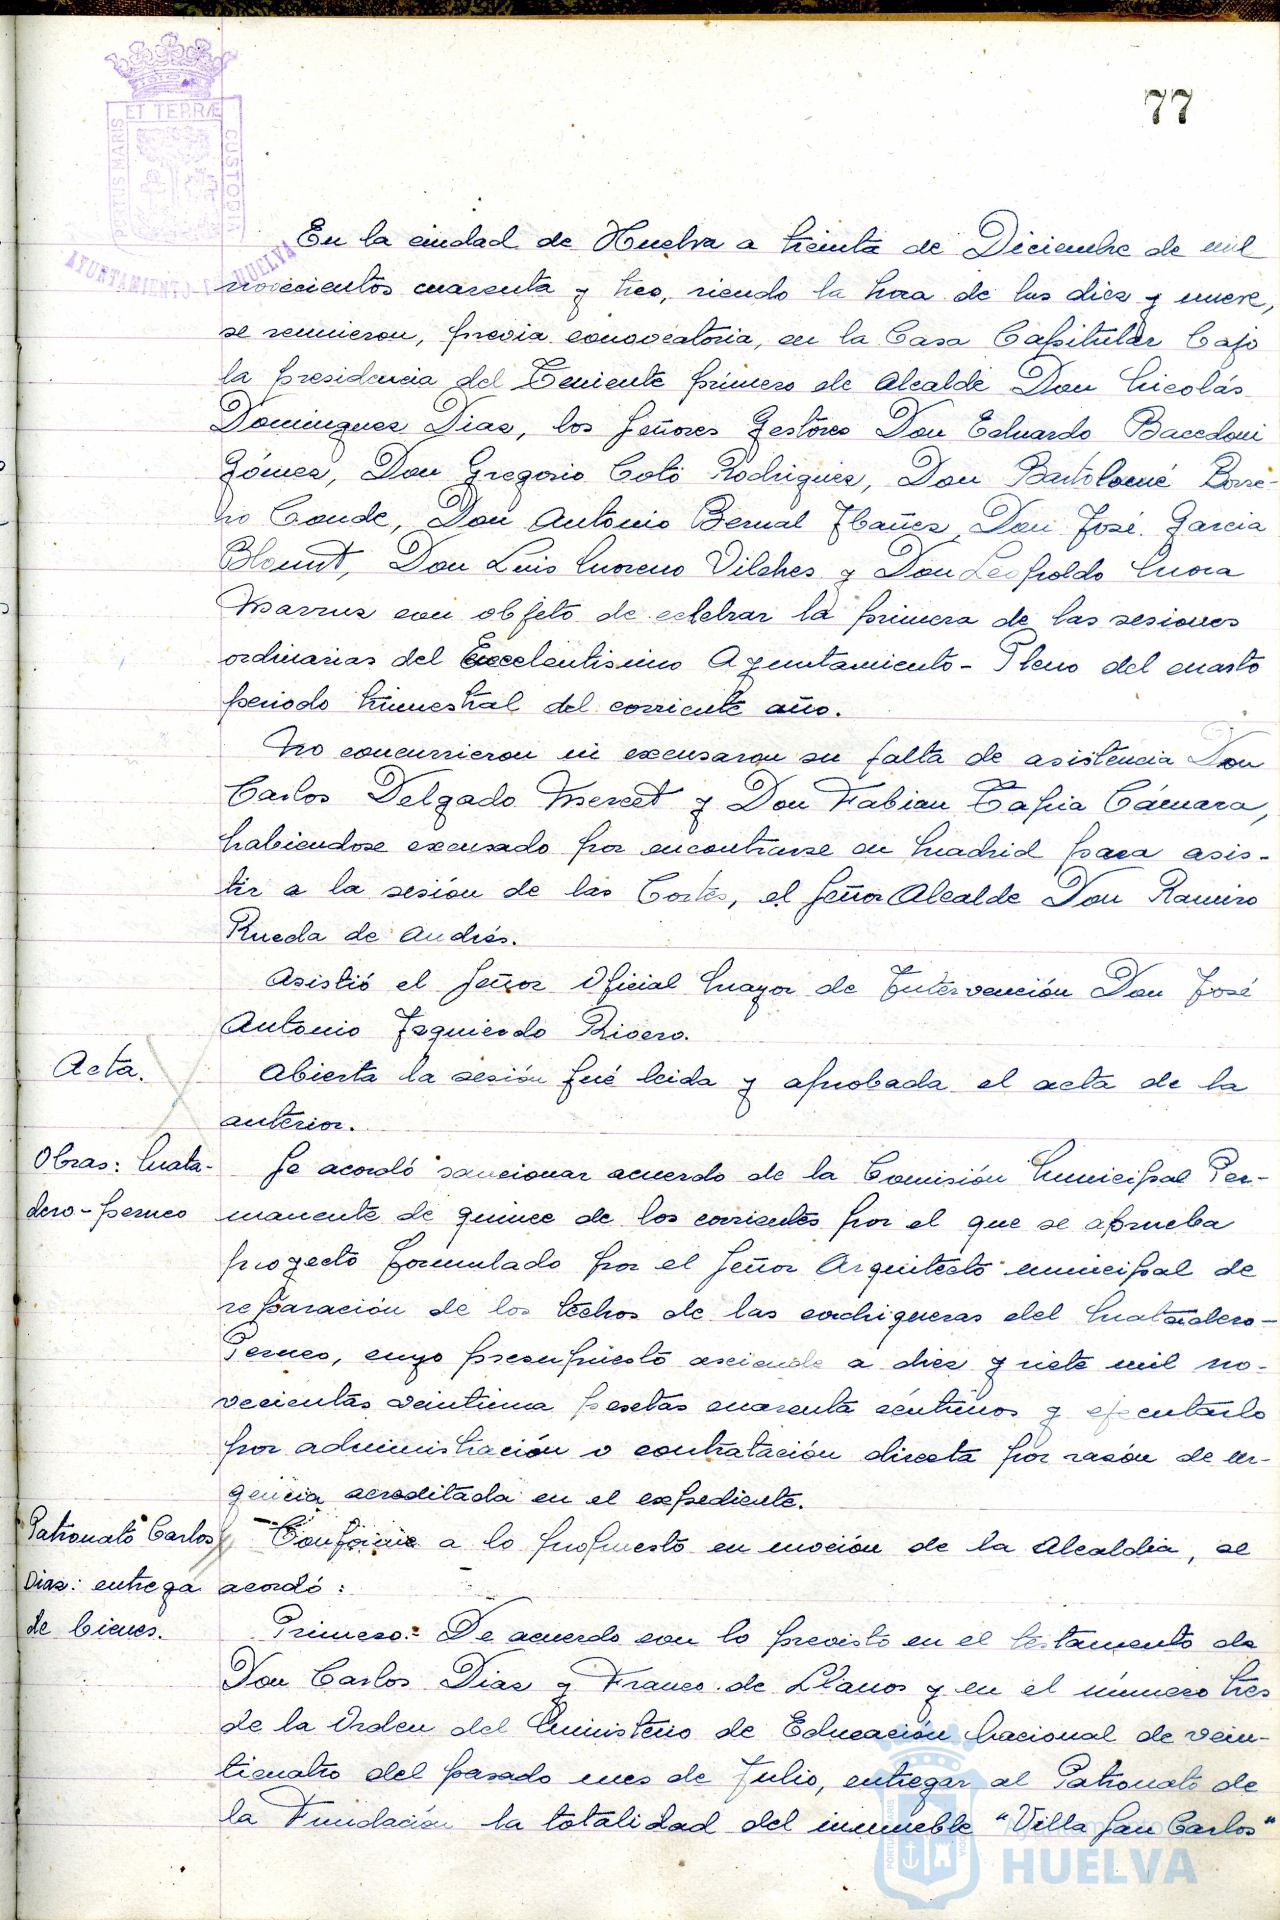 77
PORTUS MARIS ET TERRÆ CUSTODIA
AYUNTAMIENTO DE HUELVA
En la ciudad de Huelva a treinta de Diciembre de mil
novecientos cuarenta y tres, siendo la hora de las diez y nueve,
se reunieron, previa convocatoria, en la Casa Capitular bajo
la presidencia del Teniente primero de Alcalde Don Nicolás
Dominguez Diaz, los Señores Gestores Don Eduardo Bacedoni
Gómez, Don Gregorio Coto Rodriguez, Don Bartolomé Borre-
ro Conde, Don Antonio Bernal Ibañez, Don José Garcia
Blount, Don Luis Moreno Vilches y Don Leopoldo Mora
Marruz con objeto de celebrar la primera de las sesiones
ordinarias del Excelentisimo Ayuntamiento-Pleno del cuarto
periodo trimestral del corriente año.
No concurrieron ni excusaron su falta de asistencia Don
Carlos Delgado Mercet y Don Fabian Tapia Cámara,
habiendose excusado por encontrarse en Madrid para asis-
tir a la sesión de las Cortes, el Señor Alcalde Don Ramiro
Rueda de Andrés.
Asistió el Señor Oficial Mayor de Intervención Don José
Antonio Izquierdo Rivero.
Acta.
Abierta la sesión fué leida y aprobada el acta de la
anterior.
Obras: Mata-
dero-perneo
Se acordó sancionar acuerdo de la Comisión Municipal Per-
manente de quince de los corrientes por el que se aprueba
proyecto formulado por el Señor Arquitecto municipal de
reparación de los techos de las cochiqueras del Matadero-
Perneo, cuyo presupuesto asciende a diez y siete mil no-
vecientas veintiuna pesetas cuarenta céntimos y ejecutarlo
por administración o contratación directa por razón de ur-
gencia acreditada en el expediente.
Patronato Carlos
Diaz: entrega
de bienes.
Conforme a lo propuesto en moción de la Alcaldia, se
acordó:
Primero.- De acuerdo con lo previsto en el testamento de
Don Carlos Diaz y Franco de Llanos y en el número tres
de la Orden del Ministerio de Educación Nacional de vein-
ticuatro del pasado mes de Julio, entregar al Patronato de
la Fundación la totalidad del inmueble "Villa San Carlos"
HUELVA